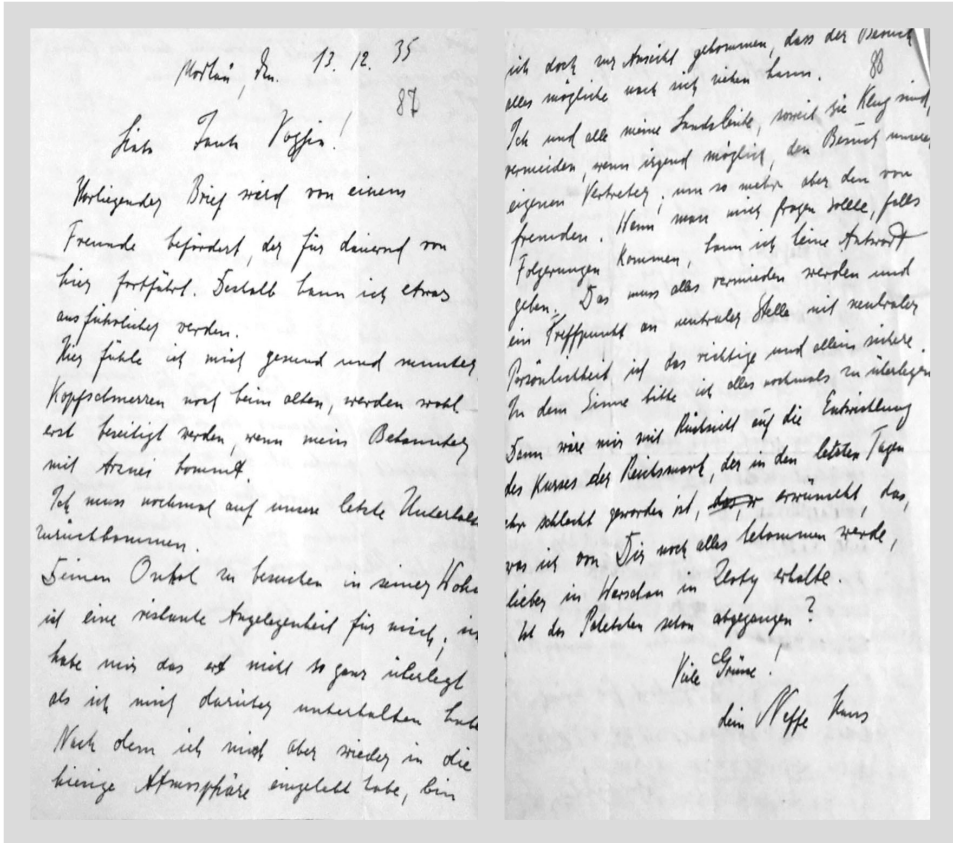 Modlau, den 13.12.35
87
Liebe Tante !
Vorliegender Brief wird von einem
Freunde befördert, der für dauernd von
hier fortfährt. Deshalb kann ich etwas
ausführlicher werden.
Hier fühle ich mich gesund und munter,
Kopfschmerzen noch beim alten, werden wohl
erst beseitigt werden, wenn mein Bekannter
mit Arznei kommt
Ich muss nochmal auf unsere letzte Unterhalt
zurückkommen.
Deinen Onkel zu besuchen in seiner Wohn
ist eine riskante Angelegenheit für mich; ic
habe mir das erst nicht so ganz überlegt
als ich mich darüber unterhalten habe
Nach dem ich mich aber wieder in die
hiesige Atmosphäre eingelebt habe, bin
ich doch zur Ansicht gekommen, dass der Besuch
88
alles mögliche nach sich ziehen kann.
Ich und alle meine Landsleute, soweit sie klug sind,
vermeiden, wenn irgend möglich, den Besuch unserer
eigenen Vertreter, um so mehr aber den von
fremden. Wenn man mich fragen sollte, falls
Folgerungen kommen, kann ich keine Antwort
geben. Das muss alles vermieden werden und
ein Treffpunkt an neutraler Stelle mit neutraler
Persönlichkeit ist das richtige und allein sichere
In dem Sinne bitte ich alles nochmals zu überlegen
Dann wäre mir mit Rücksicht auf die Entwicklung
des Kurses der Reichsmark, der in den letzten Tagen
sehr schlecht geworden ist, erwünscht, das,
was ich von Dir noch alles bekommen werde,
lieber in Warschau in Zloty erhalte.
Ist das Paketchen schon abgegangen?
Viele Grüsse!
dein Neffe Hans